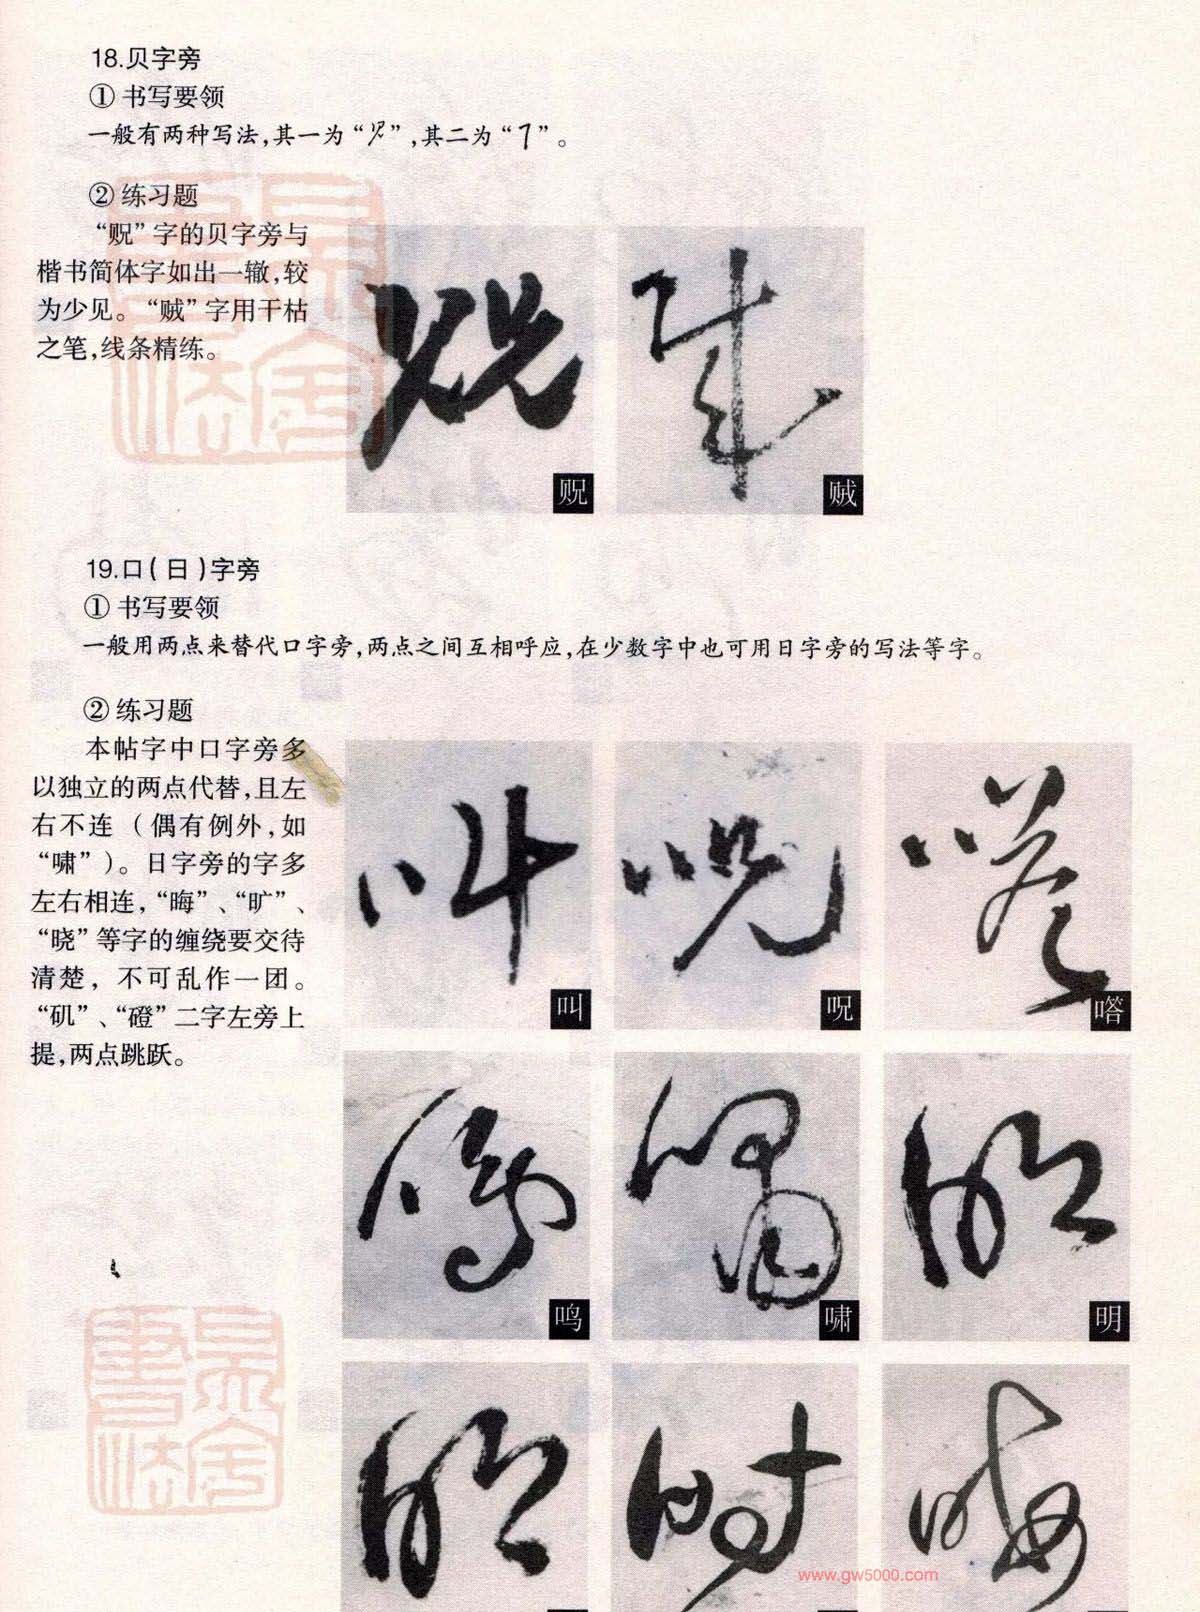 18.贝字旁
① 书写要领
一般有两种写法,其一为“”,其二为“”。
② 练习题
“贶”字的贝字旁与
楷书简体字如出一辙,较
为少见。“贼”字用干枯
之笔,线条精练。
贶
贼
19.口(日)字旁
① 书写要领
一般用两点来替代口字旁,两点之间互相呼应,在少数字中也可用日字旁的写法等字。
② 练习题
本帖字中口字旁多
以独立的两点代替,且左
右不连(偶有例外,如
“啸”)。日字旁的字多
左右相连,“晦”、“旷”、
“晓”等字的缠绕要交待
清楚,不可乱作一团。
“矶”、“磴”二字左旁上
提,两点跳跃。
叫
呪
嗒
鸣
啸
明
www.gw5000.com